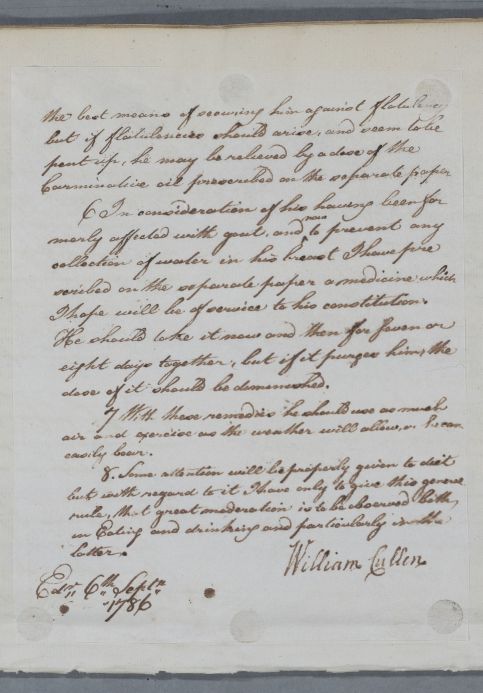 the best means of securing him against flatulency
but if flatulencies should arise, and seem to be
pent up, he may be relieved by a dose of the
Carminative oil prescribed on the separate paper
6 In consideration of his having been for
merly affected with gout, and now to prevent any
collection of water in his breast I have pre
scribed on the separate paper a medicine which
I hope will be of service to his constitution.
He should take it now and then for seven or
eight days together, but if it purges him, the
dose of it should be diminished.
7 With these remedies he should use as much
air and exercise as the weather will allow, or he can
easily bear.
8. Some attention will be properly given to diet
but with regard to it I have only to give this general
rule, that great moderation is to be observed both
in Eating and drinking and particularly in the
latter.
William Cullen
Edr. 6th Septr.
1786